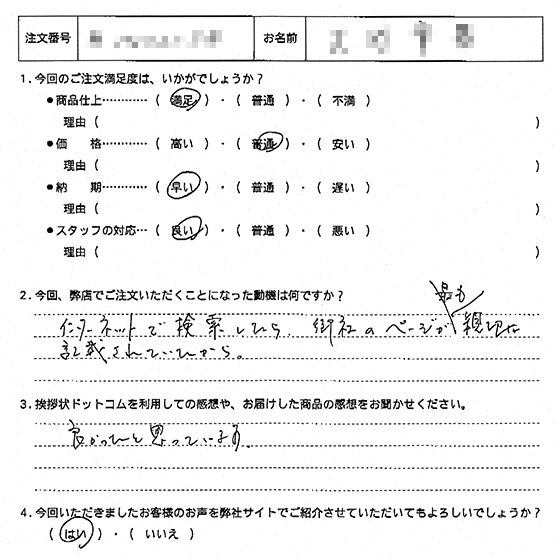 注文番号 お名前
1.今回のご注文満足度は、いかがでしょうか？
●商品仕上…………（ 満足 ）・（ 普通 ）・（ 不満 ）
理由（ ）
●価　　格…………（ 高い ）・（ 普通 ）・（ 安い ）
理由（ ）
●納　　期…………（ 早い ）・（ 普通 ）・（ 遅い ）
理由（ ）
●スタッフの対応…（ 良い ）・（ 普通 ）・（ 悪い ）
理由（ ）
2.今回、弊店でご注文いただくことになった動機は何ですか？
最も
インターネットで検索したら、御社のページが親切に
記載されていたから。
3.挨拶状ドットコムを利用しての感想や、お届けした商品の感想をお聞かせください。
良かったと思っています。
4.今回いただきましたお客様のお声を弊社サイトでご紹介させていただいてもよろしいでしょうか？
（ はい ）・（ いいえ ）